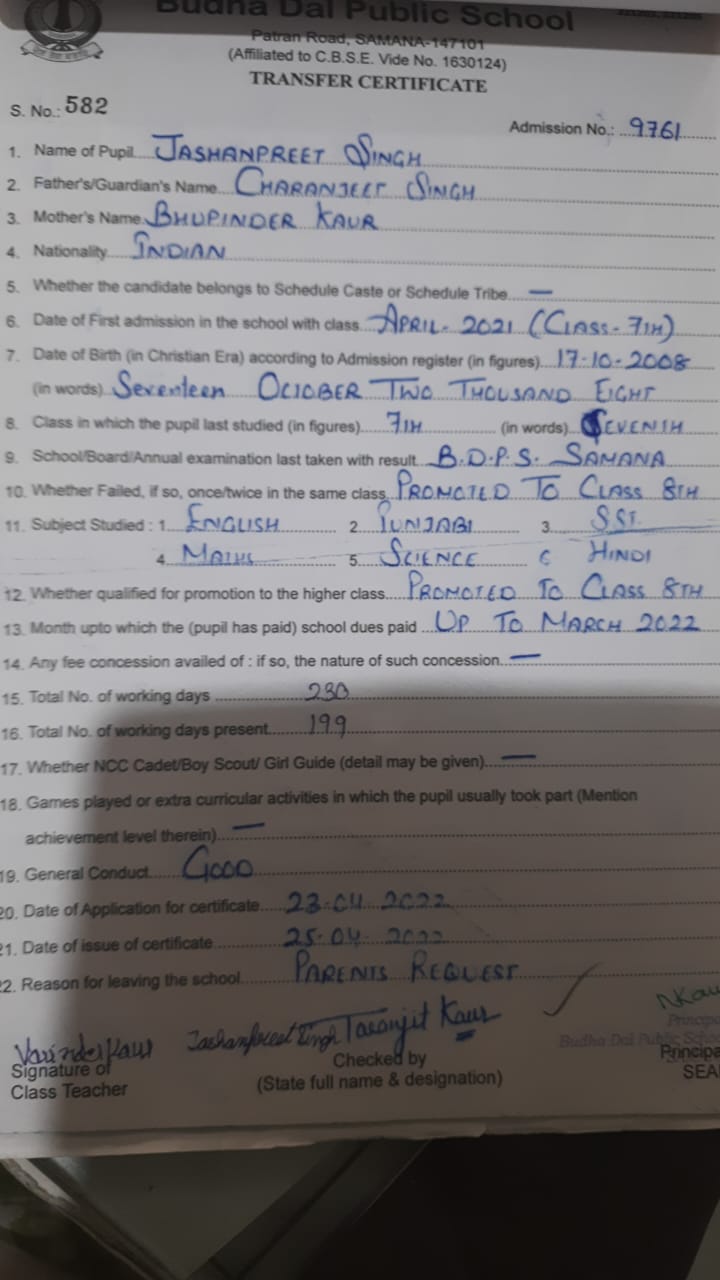 Budha Dal Public School
Patran Road, SAMANA-147101
(Affiliated to C.B.S.E. Vide No. 1630124)
TRANSFER CERTIFICATE
S. No.: 582
Admission No.: 9761
1. Name of Pupil JASHANPREET SINGH
2. Father's/Guardian's Name CHARANJEET SINGH
3. Mother's Name BHUPINDER KAUR
4. Nationality INDIAN
5. Whether the candidate belongs to Schedule Caste or Schedule Tribe —
6. Date of First admission in the school with class APRIL-2021 (CLASS-7TH)
7. Date of Birth (in Christian Era) according to Admission register (in figures) 17-10-2008
(in words) Seventeen OCTOBER TWO THOUSAND EIGHT
8. Class in which the pupil last studied (in figures) 7TH (in words) SEVENTH
9. School/Board/Annual examination last taken with result B.D.P.S. SAMANA
10. Whether Failed, if so, once/twice in the same class PROMOTED TO CLASS 8TH
11. Subject Studied : 1. ENGLISH 2. PUNJABI 3. SST.
4. MATHS 5. SCIENCE 6 HINDI
12. Whether qualified for promotion to the higher class PROMOTED TO CLASS 8TH
13. Month upto which the (pupil has paid) school dues paid UP TO MARCH 2022
14. Any fee concession availed of : if so, the nature of such concession —
15. Total No. of working days 230
16. Total No. of working days present 199
17. Whether NCC Cadet/Boy Scout/ Girl Guide (detail may be given) —
18. Games played or extra curricular activities in which the pupil usually took part (Mention
achievement level therein) —
19. General Conduct GOOD
20. Date of Application for certificate 23-04-2022
21. Date of issue of certificate 25-04-2022
22. Reason for leaving the school PARENTS REQUEST
Varinder Kaur Jashanpreet Singh Taranjit Kaur NKau
Principa
Budha Dal Public Schoo
Signature of Checked by Principa
Class Teacher (State full name & designation) SEA